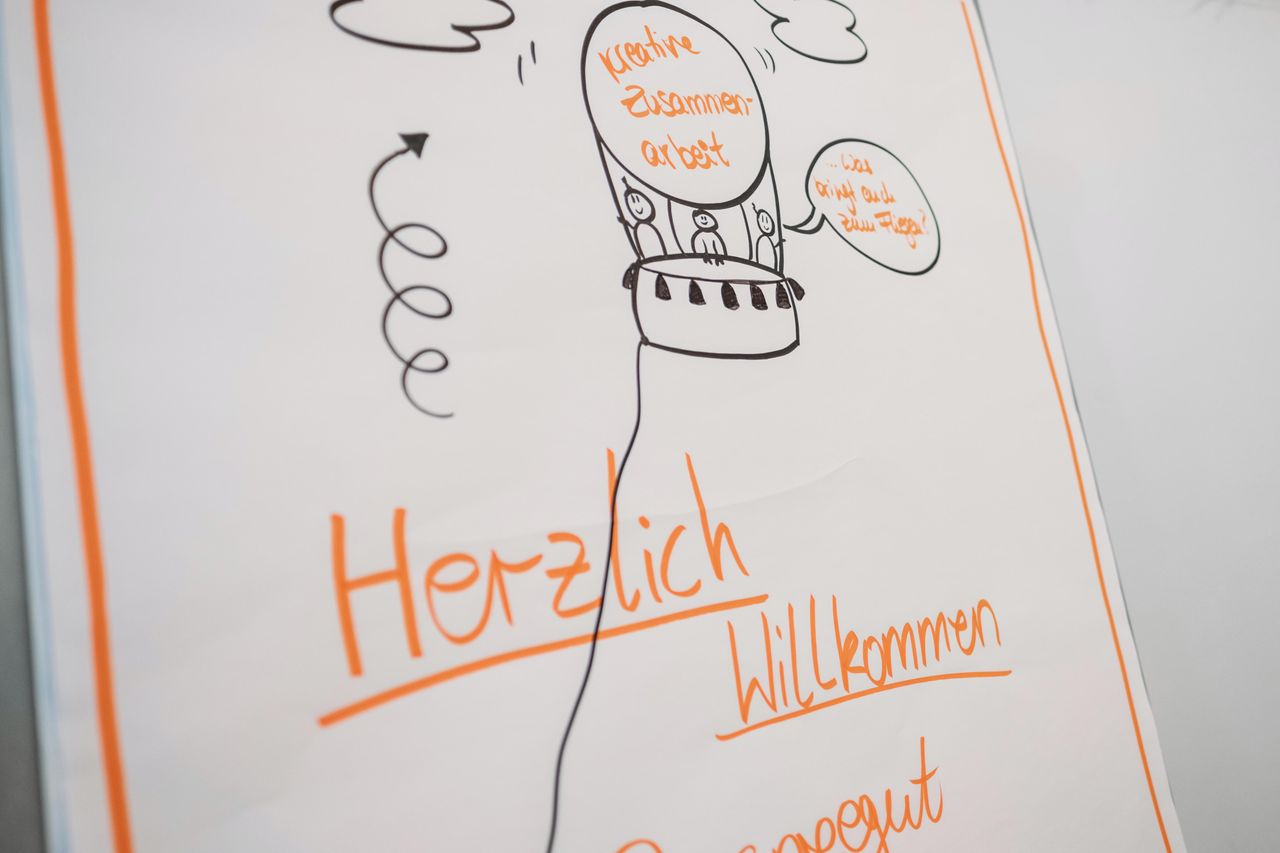 kreative
Zusammen-
arbeit
... Was
bringt euch
zum Fliegen?
Herzlich
Willkommen